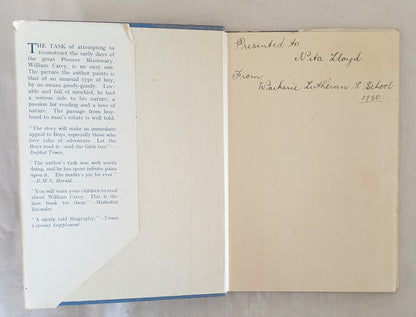 THE TASK of attempting to
reconstruct the early days of
the great Pioneer Missionary,
William Carey, is no easy one.
The picture the author paints is
that of an unusual type of boy,
by no means goody-goody. Lov-
able and full of mischief, he had
a serious side to his nature, a
passion for reading and a love
of nature. The passage from boy-
hood to man's estate is well told.
"The story will make an immediate
appeal to Boys, especially those who
love tales of adventure. Let the
Boys read it—and the Girls too!"—
Baptist Times.
"The author's task was well worth
doing, and he has spent infinite pains
upon it. The reader's joy for ever."
—B.M.S. Herald.
"You will want your children to read
about William Carey. This is the
best book for them."—Methodist
Recorder.
"A nicely told Biography."—Times
Literary Supplement
Presented to
Nita Lloyd
From
Waikerie Lutheran S. School
1950.